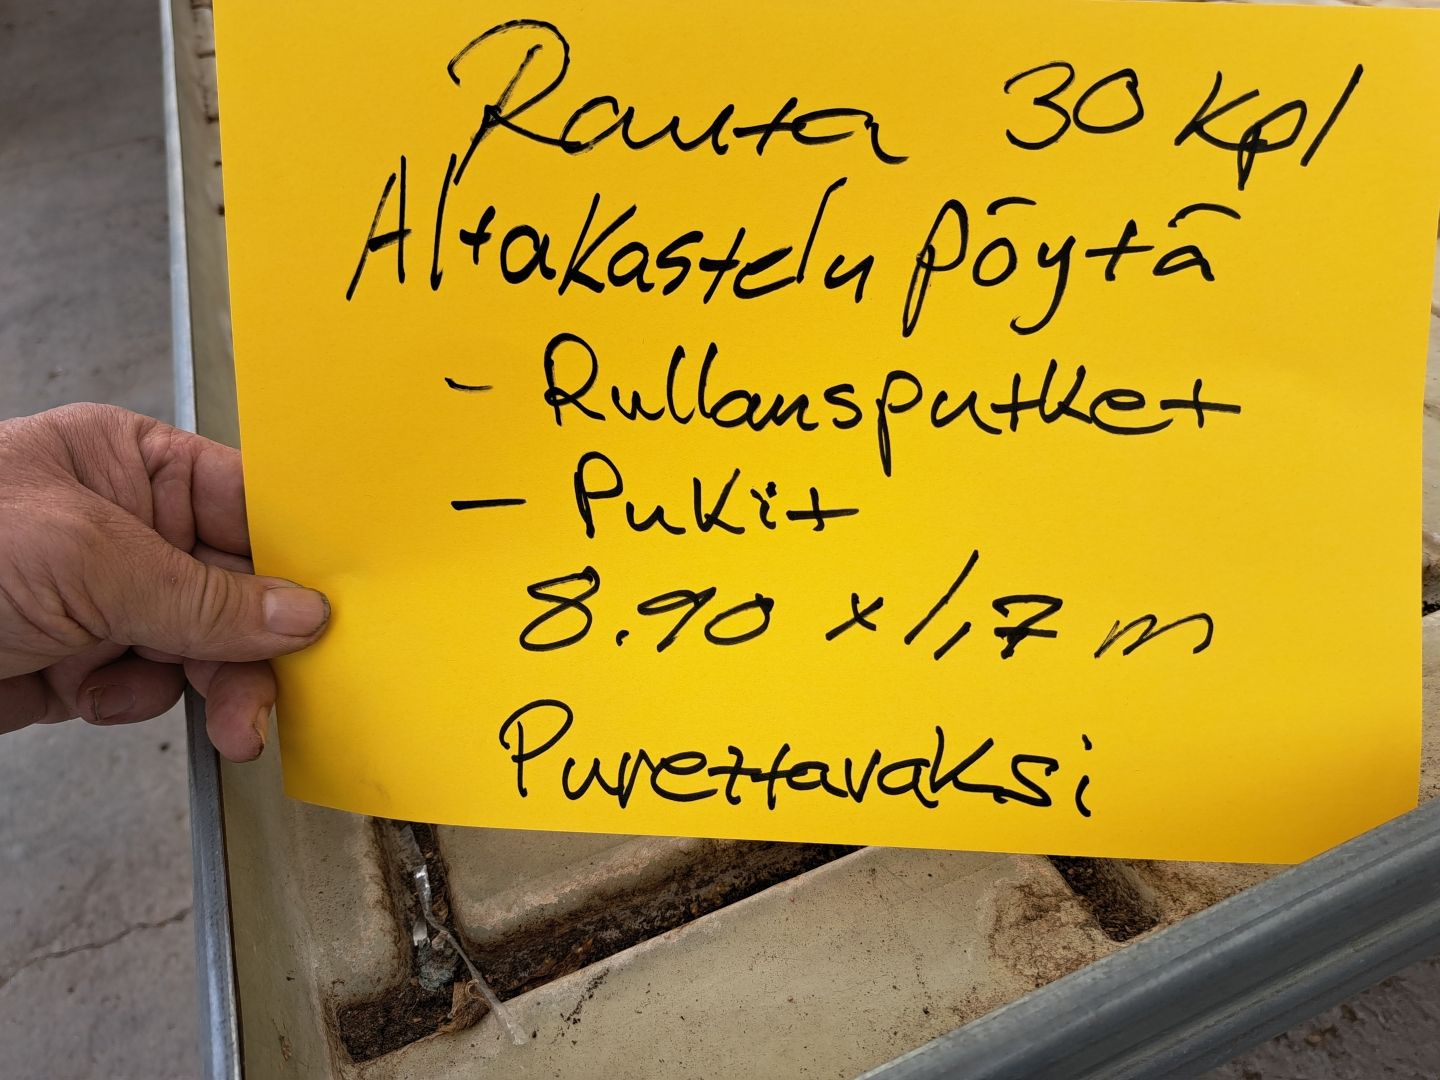 Rauta 30 kpl
Altakastelu pöytä
- Rullausputket
- Pukit
8.90 x 1,7 m
Purettavaksi